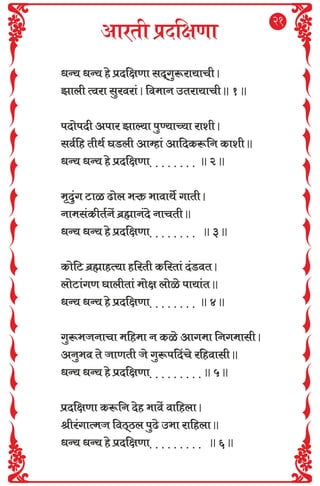 २१
आरती प्रदक्षिणा
धन्य धन्य हे प्रदक्षिणा सद्‌गुरूरायाची ।
झाली त्वरा सुरवरां । विमान उतरायाची ॥ १ ॥
पदोपदी अपार झाल्या पुण्याच्या राशी ।
सर्वहि तीर्थ घडली आम्हां आदिकरूनि काशी ॥
धन्य धन्य हे प्रदक्षिणा. . . . . . . . ॥ २ ॥
मृदुंग टाळ ढोल भक्त भावार्थे गाती ।
नामसंकीर्तनें ब्रह्मानंदे नाचती ॥
धन्य धन्य हे प्रदक्षिणा. . . . . . . . ॥ ३ ॥
कोटि ब्रह्महत्या हरिती करितां दंडवत ।
लोटांगण घालीतां मोक्ष लोळे पायांत ॥
धन्य धन्य हे प्रदक्षिणा. . . . . . . . ॥ ४ ॥
गुरूभजनाचा महिमा न कळे आगमा निगमासी ।
अनुभव ते जाणती जे गुरूपदिंचे रहिवासी ॥
धन्य धन्य हे प्रदक्षिणा. . . . . . . . . ॥ ५ ॥
प्रदक्षिणा करूनि देह भावें वाहिला ।
श्रीरंगात्मज विठ्ठल पुढे उभा राहिला ॥
धन्य धन्य हे प्रदक्षिणा. . . . . . . . . ॥ ६ ॥